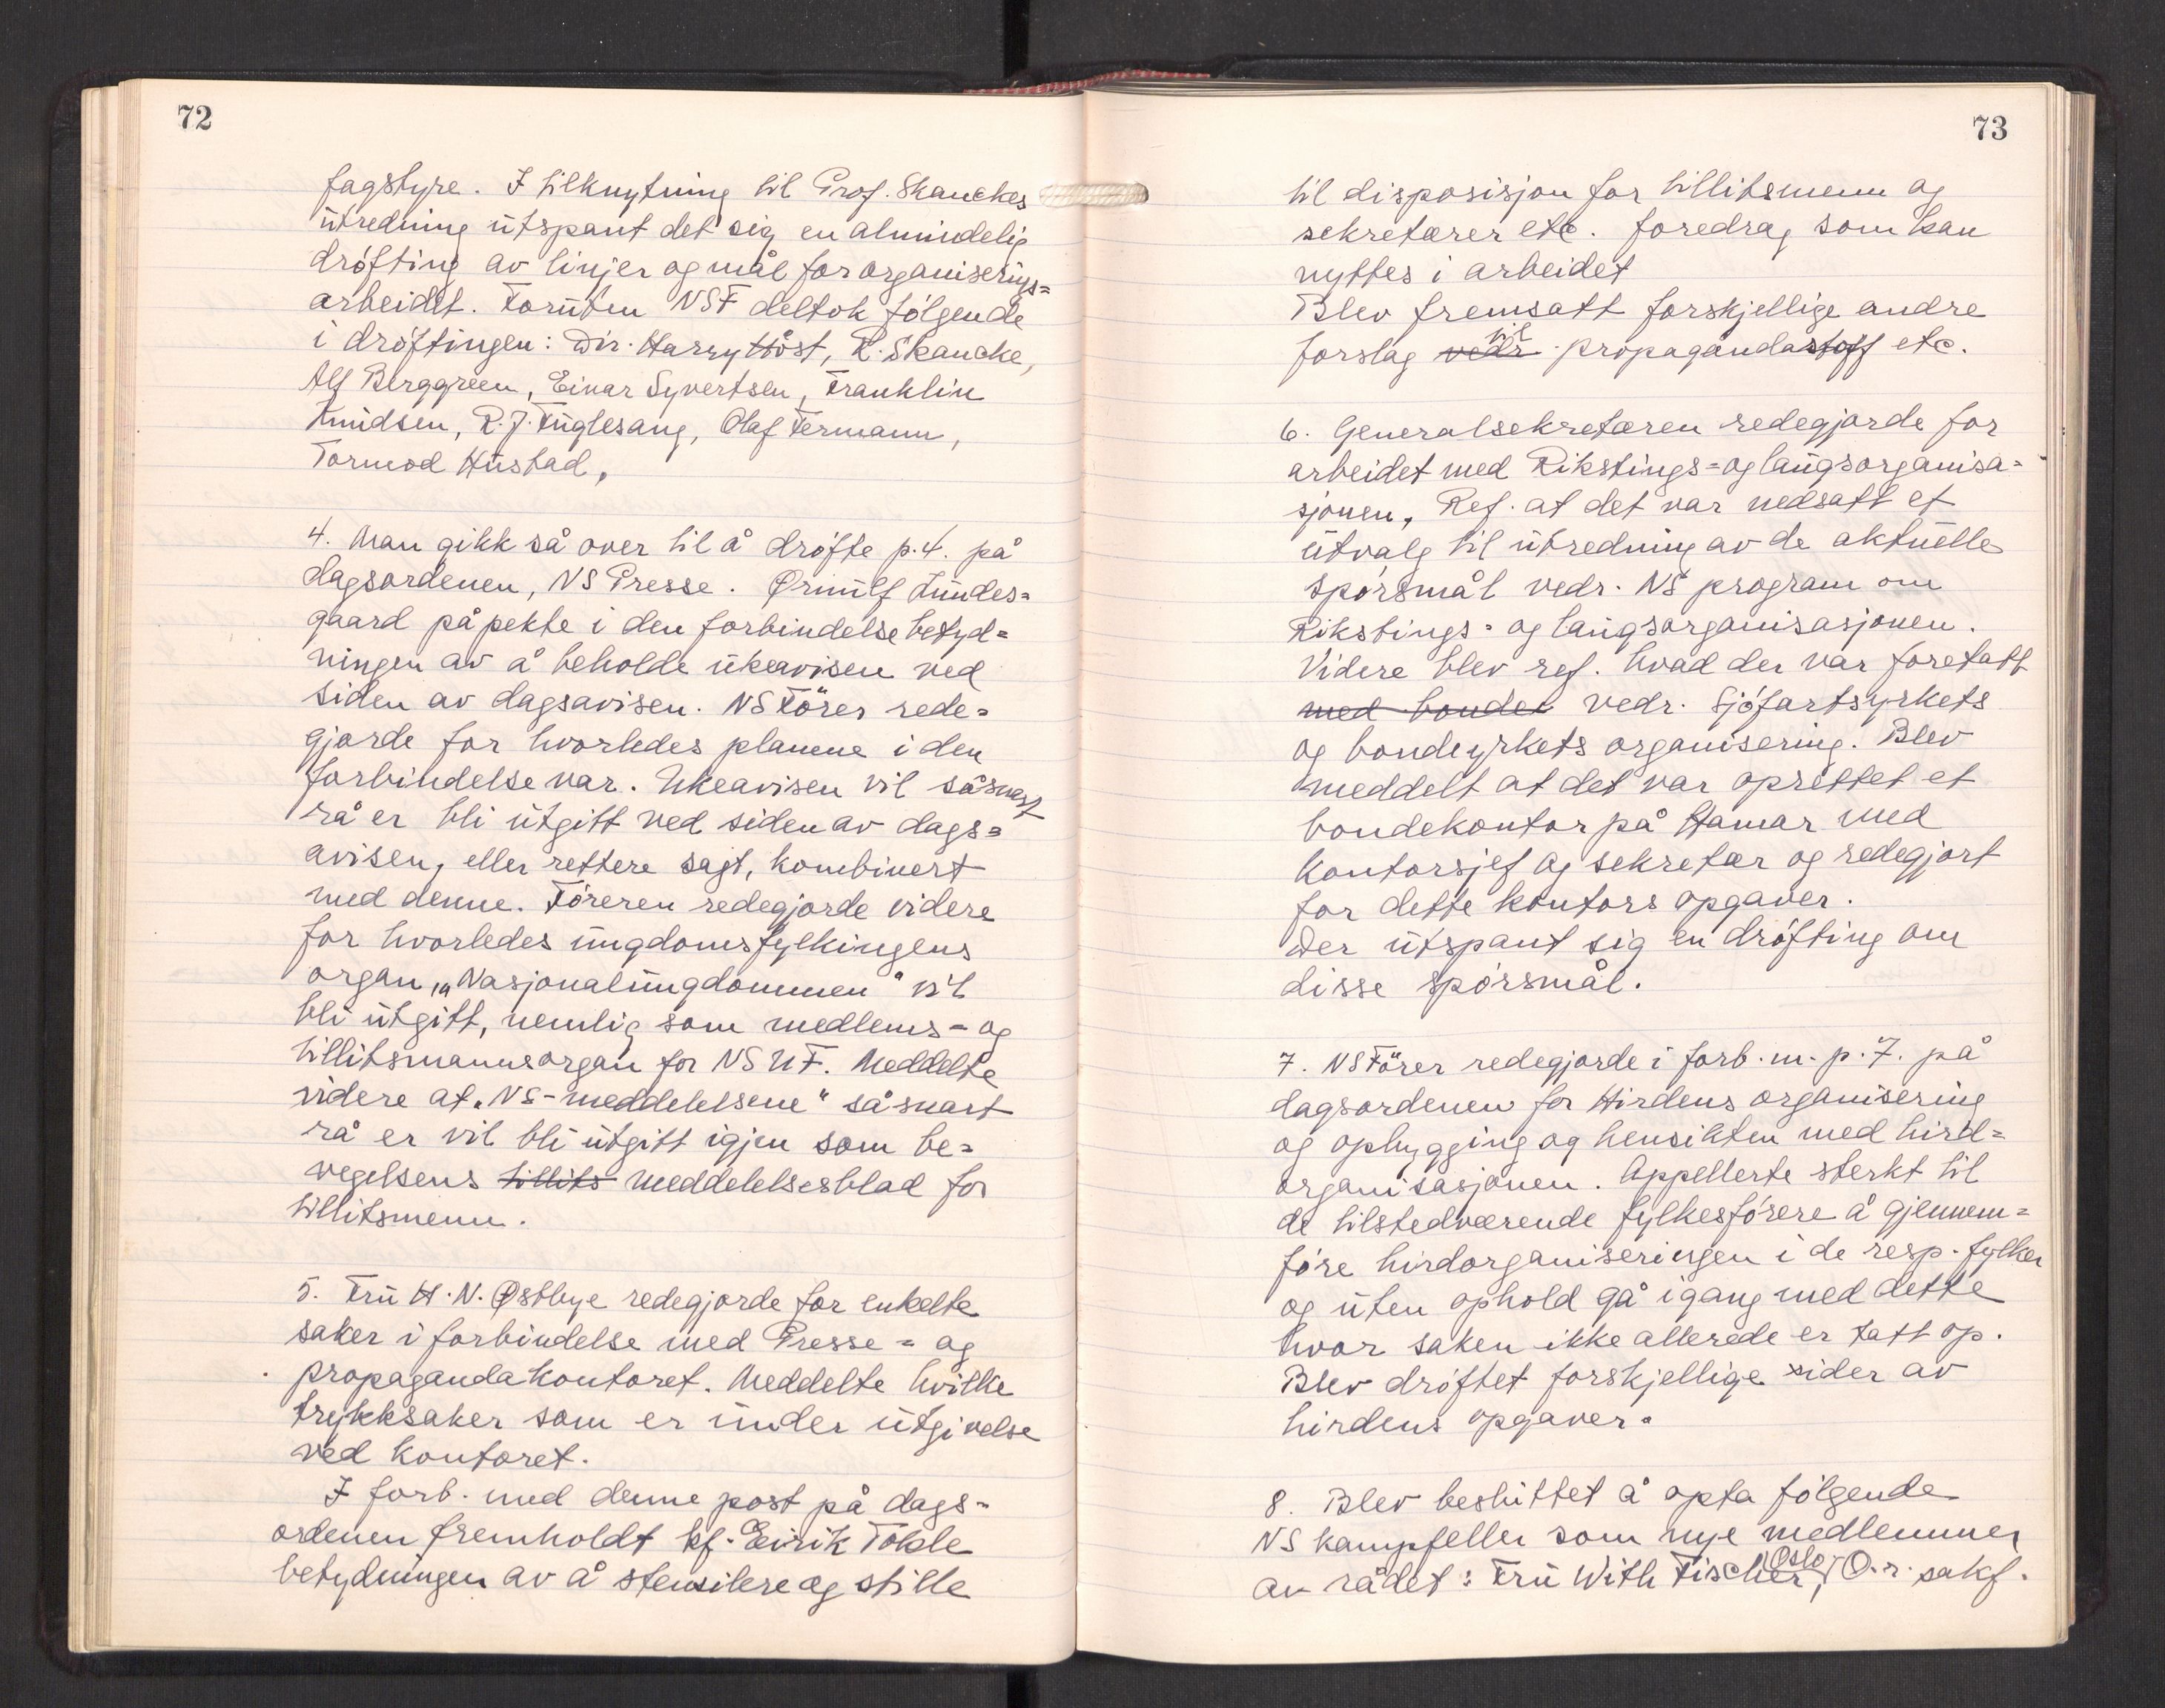 72
fagstyre. I tilknytning til Prof. Skanckes
utredning utspant det sig en almindelig
drøfting av linjer og mål for organiserings=
arbeidet. Foruten NSF deltok følgende
i drøftingen: Dir. Harry Høst, R. Skancke,
Alf Berggreen, Einar Syvertsen, Franklin
Knudsen, R.J. Fuglesang, Olaf Fermann,
Tormod Hustad,
4. Man gikk så over til å drøfte p.4. på
dagsordenen, NS Presse. Ørnulf Lundes=
gaard påpekte i den forbindelse betyd=
ningen av å beholde ukeavisen ved
siden av dagsavisen. NS Fører rede=
gjorde for hvorledes planene i den
forbindelse var. Ukeavisen vil såsnart
rå er bli utgitt ved siden av dags=
avisen, eller rettere sagt, kombinert
med denne. Føreren redegjorde videre
for hvorledes ungdomsfylkingens
organ „Nasjonalungdommen“ vil
bli utgitt, nemlig som medlems= og
tillitsmannsorgan for NSUF. Meddelte
videre at „NS-meddelelsene“ såsnart
rå er vil bli utgitt igjen som be=
vegelsens tillits meddelelsesblad for
tillitsmenn.
5. Fru H.N. Østbye redegjorde for enkelte
saker i forbindelse med Presse= og
propagandakontoret. Meddelte hvilke
trykksaker som er under utgivelse
ved kontoret.
I forb. med denne post på dags=
ordenen fremholdt kf. Eirik Tokle
betydningen av å stensilere og stille
73
til disposisjon for tillitsmenn og
sekretærer etc. foredrag som kan
nyttes i arbeidet
Blev fremsatt forskjellige andre
til
forslag vedr. propagandastoff etc.
6. Generalsekretæren redegjorde for
arbeidet med Rikstings= og laugsorganisa=
sjonen, Ref. at det var nedsatt et
utvalg til utredning av de aktuelle
spørsmål vedr. NS program om
Rikstings= og laugsorganisasjonen.
Videre blev ref. hvad der var foretatt
med bonde vedr. Sjøfartsyrkets
og bondeyrkets organisering. Blev
meddelt at det var oprettet et
bondekontor på Hamar med
kontorsjef og sekretær og redegjort
for dette kontors opgaver.
Der utspant sig en drøfting om
disse spørsmål.
7. NS Fører redegjorde i forb. m. p. 7. på
dagsordenen for Hirdens organisering
og opbygging og hensikten med hird=
organisasjonen. Appellerte sterkt til
de tilstedværende fylkesførere å gjennem=
føre hirdorganiseringen i de resp. fylker
og uten ophold gå igang med dette
hvor saken ikke allerede er tatt op.
Blev drøftet forskjellige sider av
hirdens opgaver.
8. Blev besluttet å opta følgende
NS kampfeller som nye medlemmer
av rådet: Fru With Fischer, Oslo, O.r. sakf.